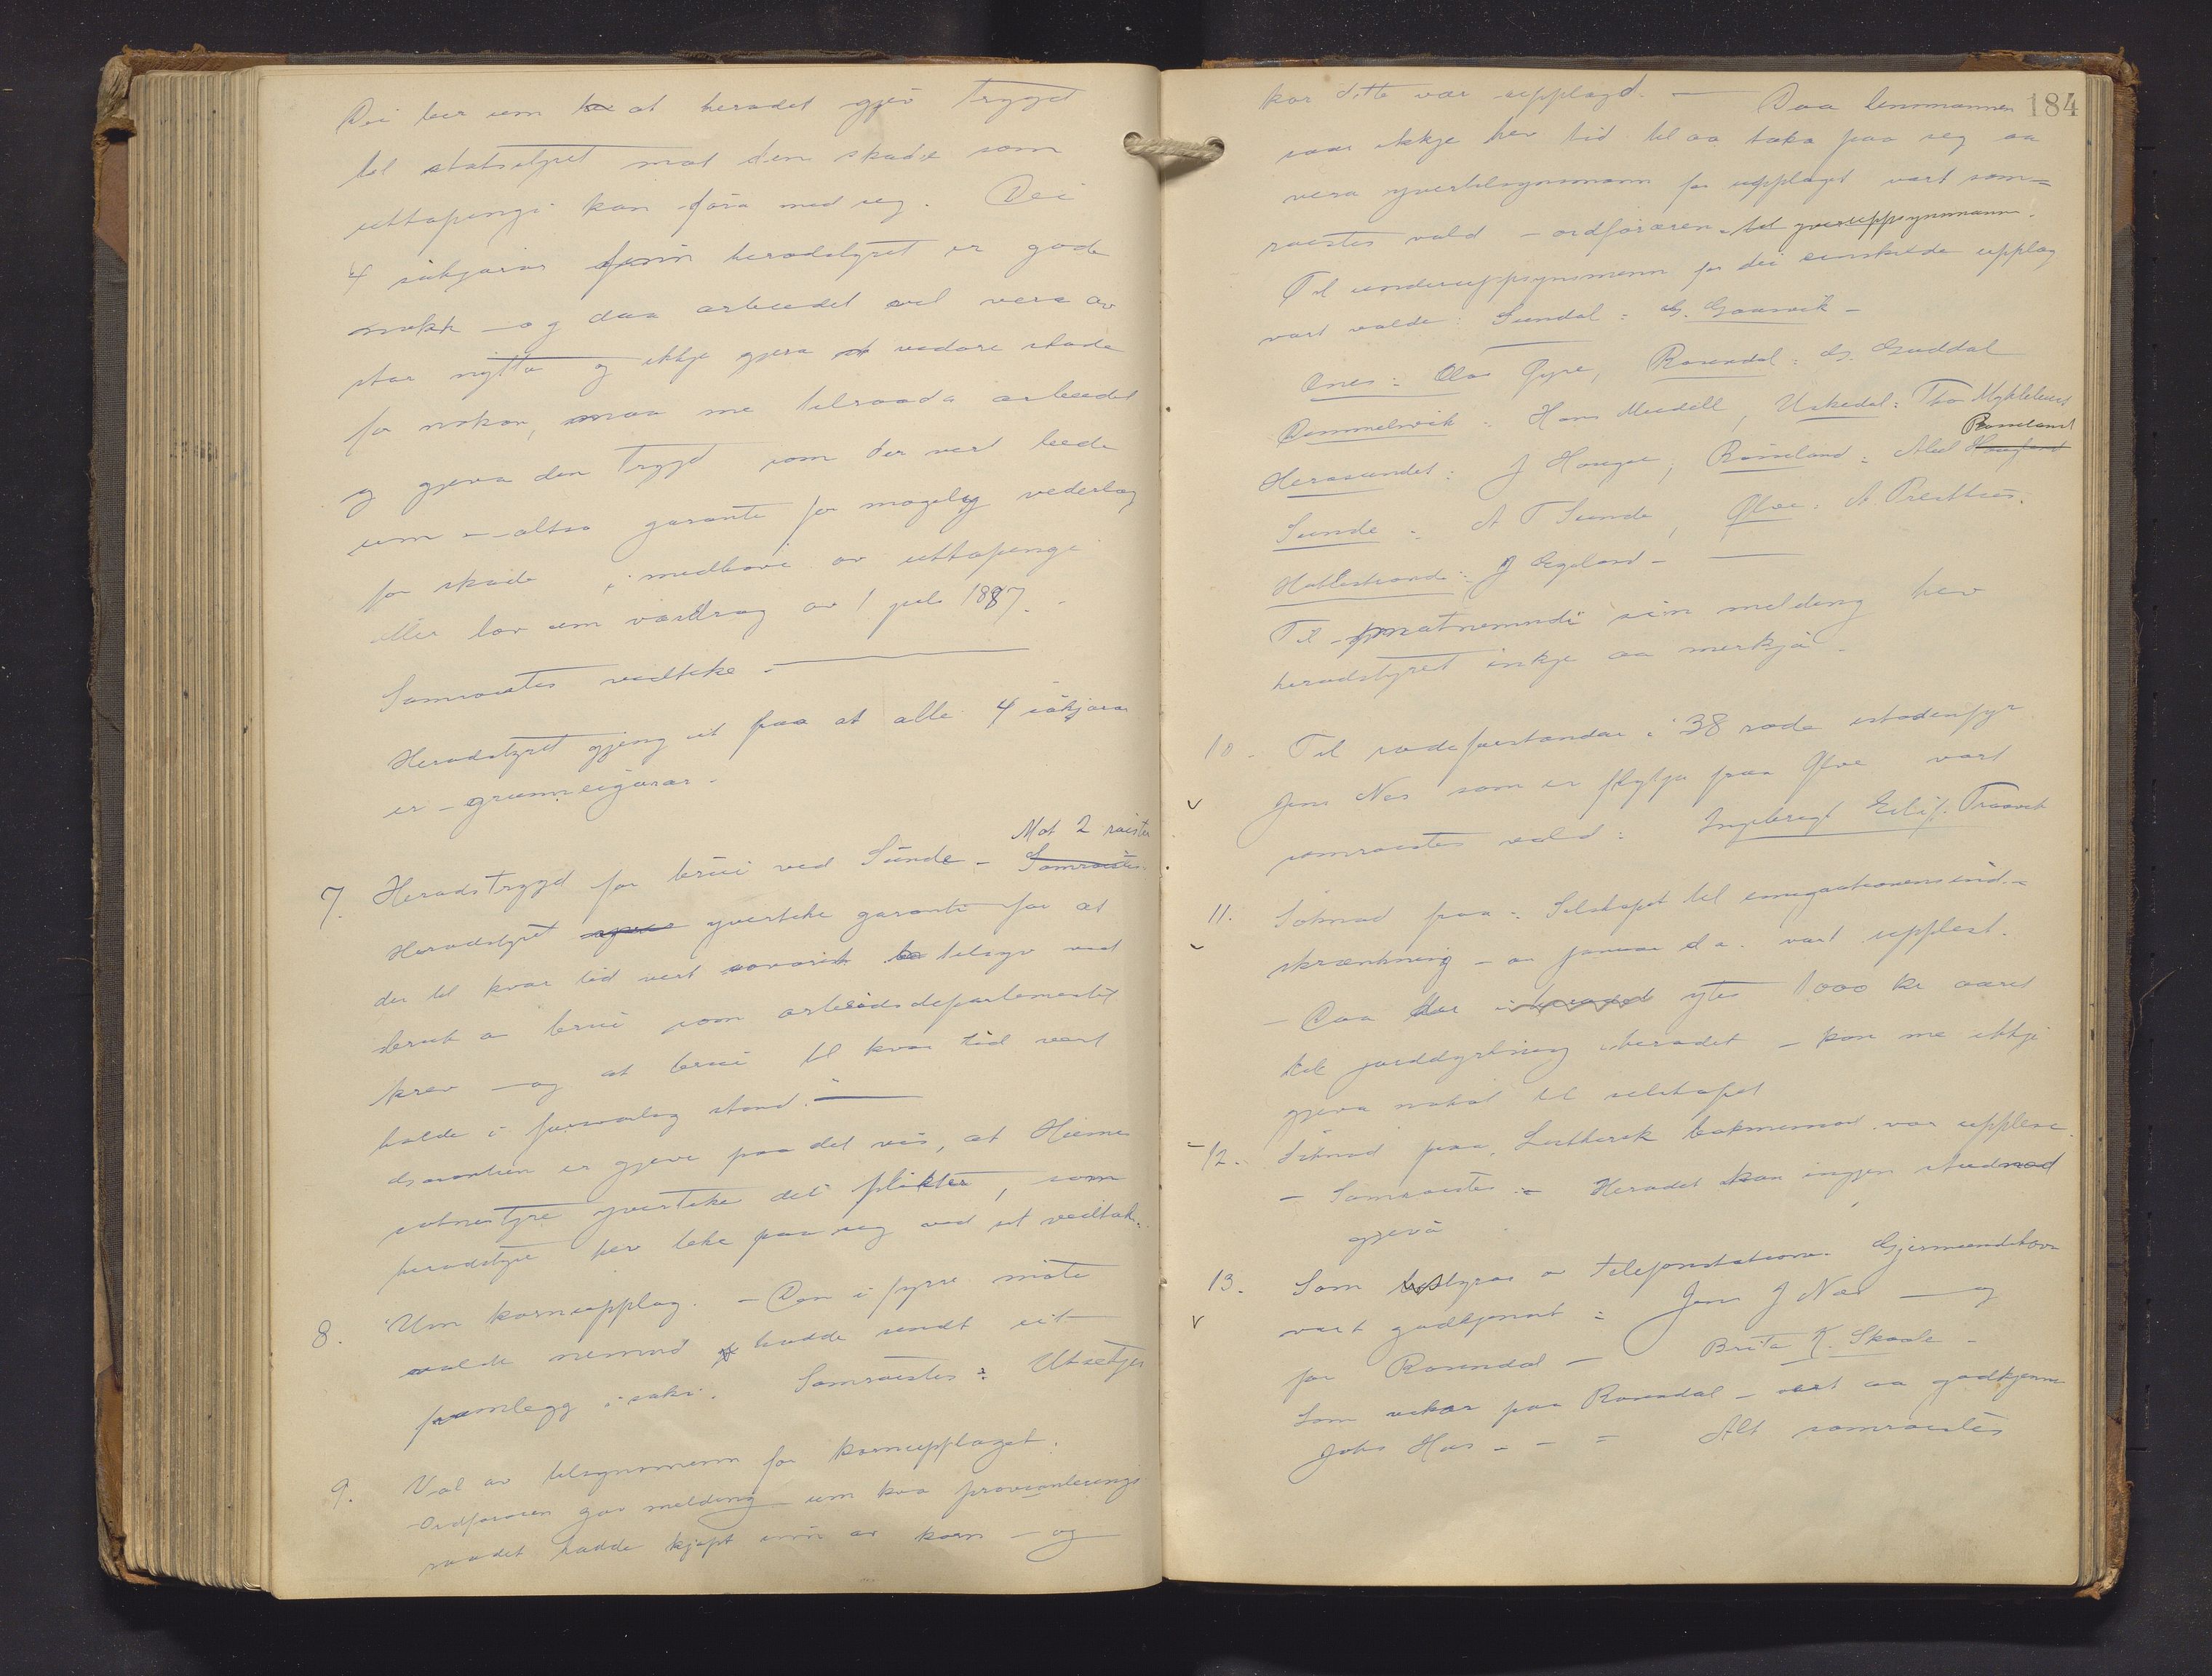 Dei ber um at heradet gjev trygd
til statsstyret mot den skade som
uttapingi kan føra med seg. Dei
4 søkjarar finn heradstyret er gode
nokk – og daa arbeidet vil vera av
stor nytta og ikkje gjera vedare skade
for nokon, maa me tilraada arbeidet
og gjeva den trygd som der vert bede
um – altso garanti for mogeleg vederlag
for skade i medhøve av uttapingi
etter lov um vasdrag av 1 juli 1887. –
Samrøystes vedteke. –
Heradstyret gjeng ut fraa at alle 4 søkjarar
er – grunneigarar. –
Mot 2 røister
7. Heradstrygd for brui ved Sunde – Samrøistes
Heradstyret yverteke garanti for at
der til kvar tid vert tilsyn med
bruk av brui som arbeidsdepartementet
krev – og at brui til kvar tid vert
halde i forsvarleg stand. –
Garantien er gjeve paa det vis, at Husnes
soknestyre yverteke dei plikter, som
heradstyre hev teke paa seg med sit vedtak.
8. Um kornupplag. – Den i fyrre møte
valde nemnd hadde sendt eit
framlegg i saki. Samrøistes: Utsetjes
9. Val av tilsynsmenn for kornupplaget.
Ordføraren gav melding um kva provianterings
raadet hadde kjøpt inn av korn – og
184
kor dette var upplagd. – Daa lensmannen
ikkje hev tid til aa taka paa seg aa
vera yvertilsynsmann for upplaget vart sam=
røistes vald – ordføraren til yveruppsynsmann.
Til underuppsynsmenn for dei einskilde upplag
vart valde: Sundal: G. Gaarvik –
Ænes: Olav Øyre, Rosendal: G. Guddal
Dimmelsvik: Hans Mundell, Uskedal: Thor Myklebust
Røiseland
Herøsundet: J Hauge, Røiseland: Abel
Sunde: A T Sunde, Ølve: A. Presthus.
Hatlestrand: J Egeland –
Til matnemndi sin melding hev
heradstyret inkje aa merkja –
10. Til rodeforstandar i 38 rode istadenfyr
Jens Nes som er flytja fraa Ølve vart
samrøistes vald: Ingebrigt Eilif. Traavik
11. Søknad fraa: Selskapet til emigrationens ind-
skrænkning – av januar d. a. vart upplest.
– Daa der ytes 1000 kr aaret
til jorddyrking i heradet – kan me ikkje
gjeva nokot til selskapet
12. Søknad fraa Luthersk bokmission var upplese.
– Samrøistes: – Heradet kan ingjen studnad
gjeva
13. Som bestyrar av telefonstationen Gjermundshavn
vart godkjennt: Jens J Nes – og
for Rosendal – Brita K. Skaale –
Som vikar paa Rosendal – vart aa godkjenne
Johs Hus – – = Alt samrøistes